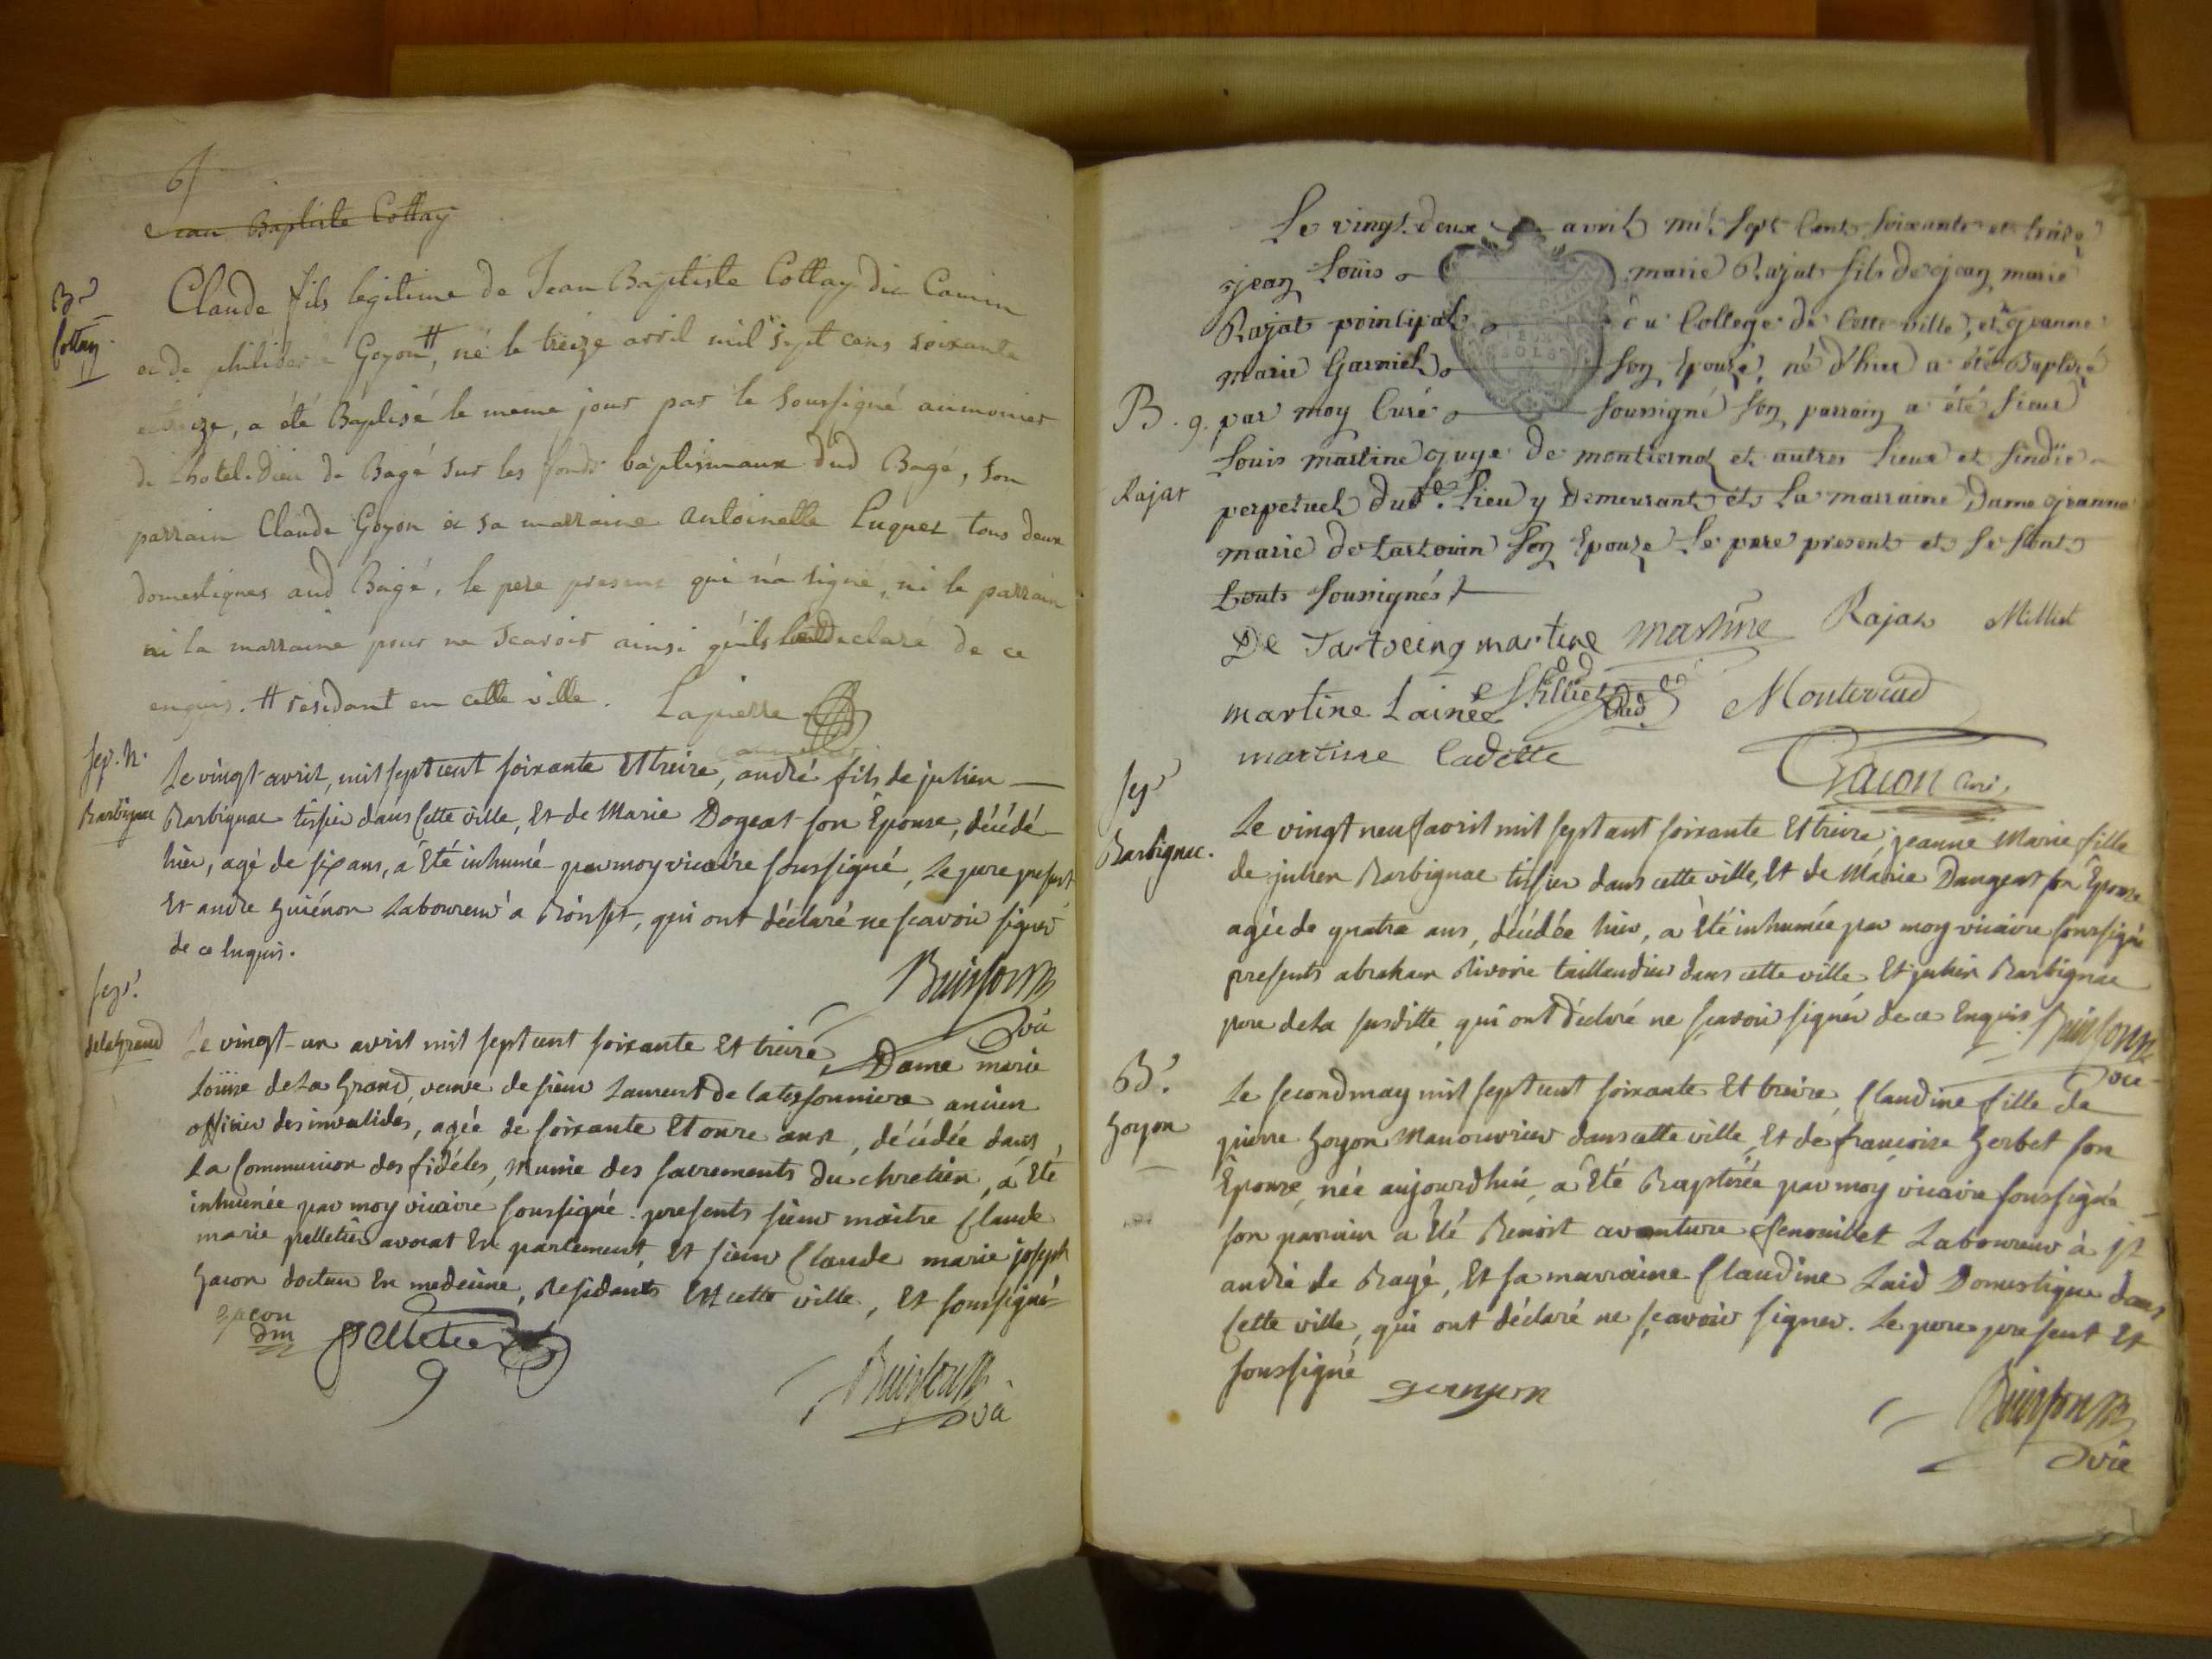 Jean Baptiste Cottay
Bp
Cottay
Claude fils legitime de Jean Baptiste Cottay dit Camin
et de philiberte Goyon #, né le treize avril mil sept cens soixante
et treize, a été Baptisé le meme jour par le soussigné aumonier
de l'hotel-dieu de Bagé sur les fonds baptismaux dud Bagé, son
parrain Claude Goyon et sa marraine antoinette Luquet tous deux
domestiques aud Bagé, le pere present qui n'a signé, ni le parrain
ni la marraine pour ne scavoir ainsi qu'ils l'ont declaré de ce
enquis. # residant en cette ville. Lapierre
aumonier
Sep.
Barbignac
Le vingt avril, mil sept cent soixante Et treize, andré fils de julien
Barbignac tissier dans Cette ville, Et de Marie Dogeat son Epouse, décédé
hier, agé de six ans, a Eté inhumé par moy vicaire soussigné, Le pere present
Et andré Guiénon Laboureur a , qui ont déclaré ne scavoir signer
de ce Enquis.
Buisson
vic
Sep.
dela Grand
Le vingt-un avril mil sept cent soixante Et treize, Dame marie
Louise de La Grand, veuve de sieur Laurent de latessonniere ancien
officier des invalides, agée de soixante Et onze ans, décédée dans
La Communion des fidéles, Munie des sacrements du chretien, a Eté
inhumée par moy vicaire soussigné. presents sieur maitre Claude
marie pelletier avocat En parlement, Et sieur Claude marie joseph
Gacon docteur En medecine, Residants En cette ville, Et soussignés
Gacon
dm Pelletier
Buisson
vic
Le vingt deux avril mil sept Cent soixante et treize
jean Louis marie Rajat fils de jean marie
Rajat principal du College de Cette ville, et de jeanne
marie Garnier son Epouse, né d'hier a été Baptizé
B. g. par moy Curé soussigné son parrain a été sieur
Louis martine juge de montiernoz et autres Lieux et sindic
Rajat
perpetuel dud. Lieu y Demeurant et La marraine Dame jeanne
marie de tartouin son Epouze Le pere present et se sont
touts soussignés
De Tartoeing martine martine Rajat Milliet
martine Lainée Monterrad
martine Cadette
Gacon Curé
Sep
Barbignac.
Le vingt neuf avril mil sept cent soixante Et treize, jeanne Marie fille
de julien Barbignac tissier dans cette ville, Et de Marie Dangeat son Epouse
agée de quatre ans, décédée hier, a Eté inhumée par moy vicaire soussigné
presents abraham Rivoire taillandier dans cette ville Et julien Barbignac
pere de La susditte, qui ont déclaré ne scavoir signer de ce Enquis. Buisson
vic
B.
Goyon
Le second may mil sept cent soixante Et treize, Claudine fille de
pierre Goyon Manouvrier dans cette ville, Et de francoise Gerbet son
Epouse, née aujourdhui, a Eté Baptisée par moy vicaire soussigné
son parrain a Eté Benoit avanture fenouillet Laboureur à st
andré de Bagé, Et sa marraine Claudine Laid Domestique dans
Cette ville, qui ont déclaré ne scavoir signer. Le pere present Et
soussigné
Buisson
vic